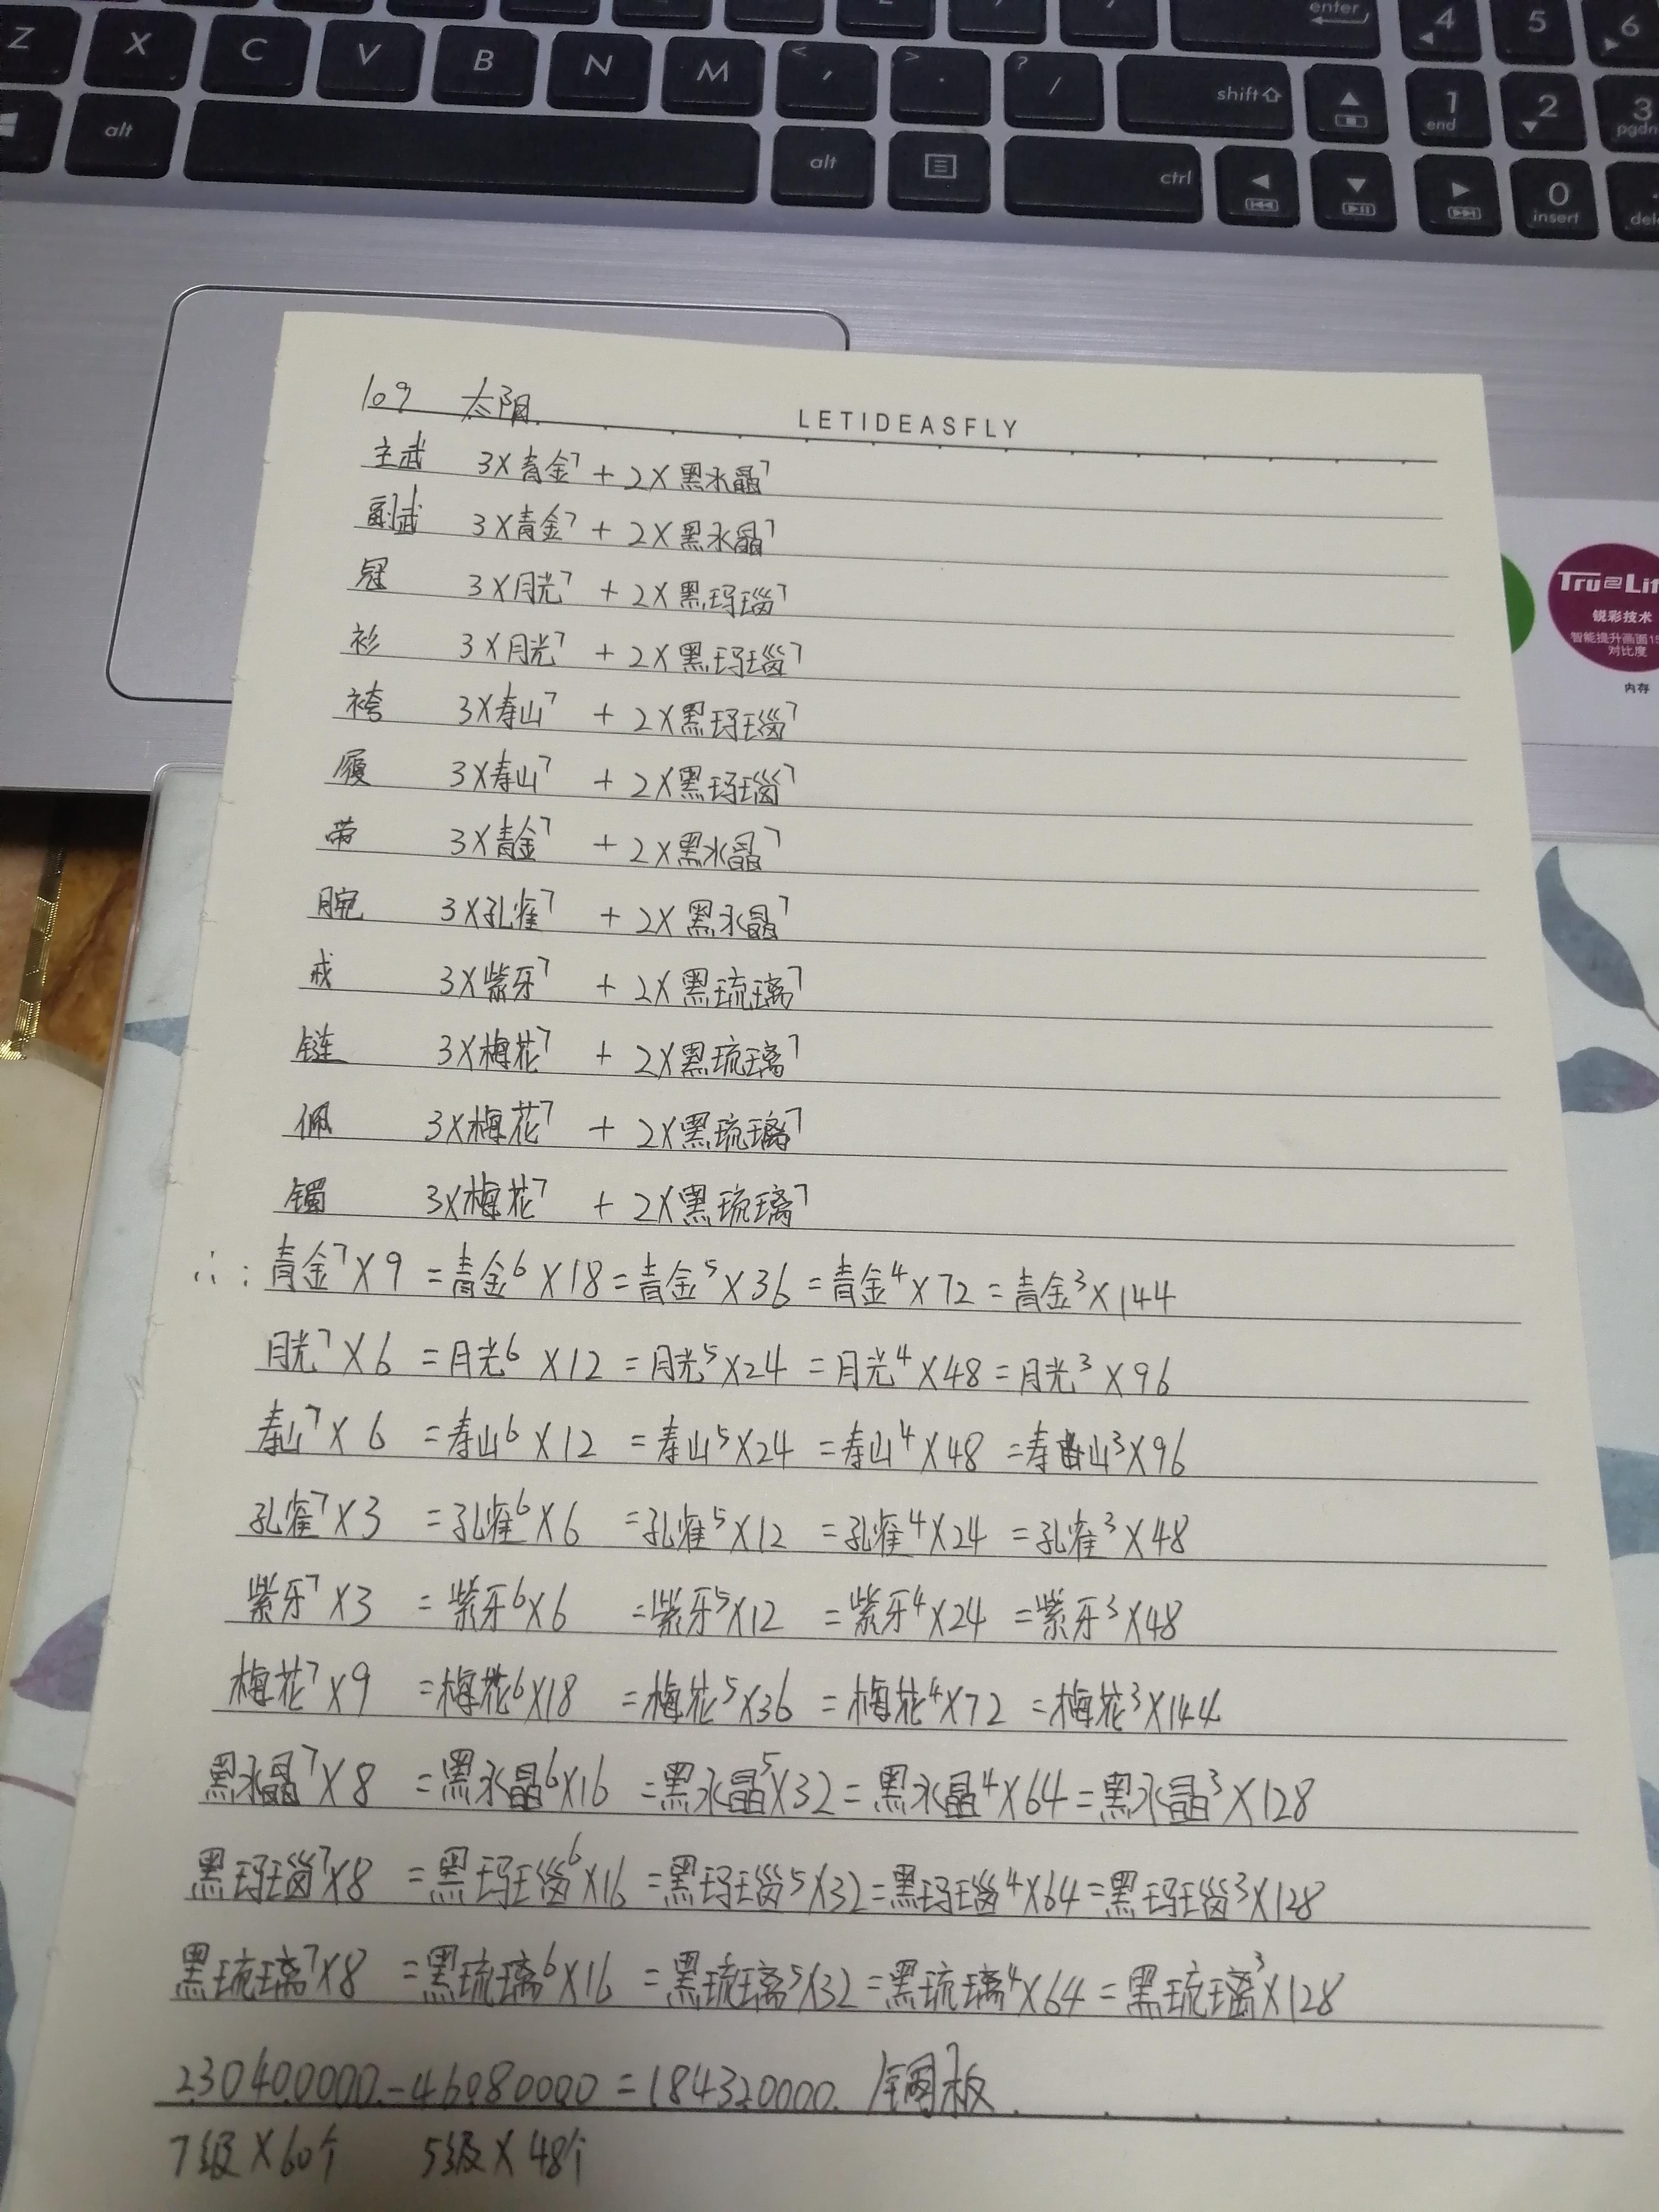 enter
4
5
6
Z X C V B N M < , > . ? /
shift
1 end
2
3 pgdn
alt
alt
ctrl
0 insert
del
Tru2Lif
锐彩技术
智能提升画面15
对比度
内存
LETIDEASFLY
109 太阳
主武 3X青金7 + 2X黑水晶7
副武 3X青金7 + 2X黑水晶7
冠 3X月光7 + 2X黑玛瑙7
衫 3X月光7 + 2X黑玛瑙7
袴 3X寿山7 + 2X黑玛瑙7
履 3X寿山7 + 2X黑玛瑙7
带 3X青金7 + 2X黑水晶7
腕 3X孔雀7 + 2X黑水晶7
戒 3X紫牙7 + 2X黑琉璃7
链 3X梅花7 + 2X黑琉璃7
佩 3X梅花7 + 2X黑琉璃7
镯 3X梅花7 + 2X黑琉璃7
∴: 青金7X9 = 青金6X18 = 青金5X36 = 青金4X72 = 青金3X144
月光7X6 = 月光6X12 = 月光5X24 = 月光4X48 = 月光3X96
寿山7X6 = 寿山6X12 = 寿山5X24 = 寿山4X48 = 寿山3X96
孔雀7X3 = 孔雀6X6 = 孔雀5X12 = 孔雀4X24 = 孔雀3X48
紫牙7X3 = 紫牙6X6 = 紫牙5X12 = 紫牙4X24 = 紫牙3X48
梅花7X9 = 梅花6X18 = 梅花5X36 = 梅花4X72 = 梅花3X144
黑水晶7X8 = 黑水晶6X16 = 黑水晶5X32 = 黑水晶4X64 = 黑水晶3X128
黑玛瑙7X8 = 黑玛瑙6X16 = 黑玛瑙5X32 = 黑玛瑙4X64 = 黑玛瑙3X128
黑琉璃7X8 = 黑琉璃6X16 = 黑琉璃5X32 = 黑琉璃4X64 = 黑琉璃3X128
230400000-46080000=184320000 铜板
7级X60个 5级X48个